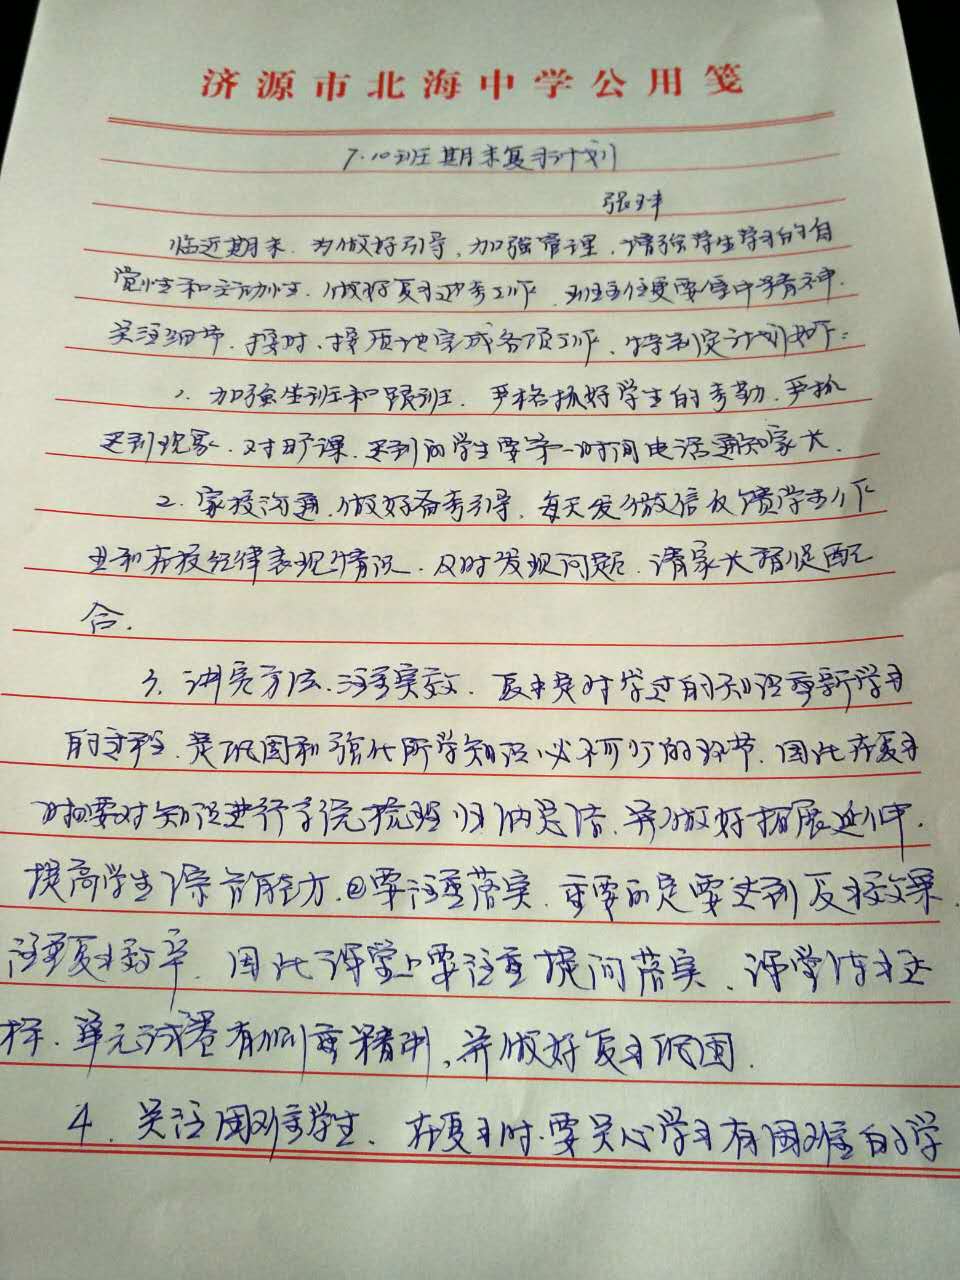 济源市北海中学公用笺
7.10班期末复习计划
张
临近期末，为做好引导，加强管理，增强学生学习的自
觉性和主动性，做好复习迎考工作，班主任更要集中精神，
关注细节，按时、按质地完成各项工作，特制定计划如下：
1. 加强坐班和跟班，严格抓好学生的考勤，严抓
迟到现象，对旷课、迟到的学生要第一时间电话通知家长．
2. 家校沟通，做好备考引导，每天发微信反馈学生作
业和在校纪律表现情况，及时发现问题，请家长督促配
合．
3. 讲究方法，注重实效，复习是对学过的知识重新学习
的过程，是巩固和强化所学知识必不可少的环节，因此在复习
时要对知识进行系统梳理归纳总结，并做好拓展延伸，
提高学生综合能力，②要注重落实，重要的是要达到复习效果，
注重复习效率，因此课堂上要注重提问落实，课堂练习达
标，单元试卷有侧重精讲，并做好复习巩固．
4. 关注困难学生，在复习时，要关心学习有困难的学